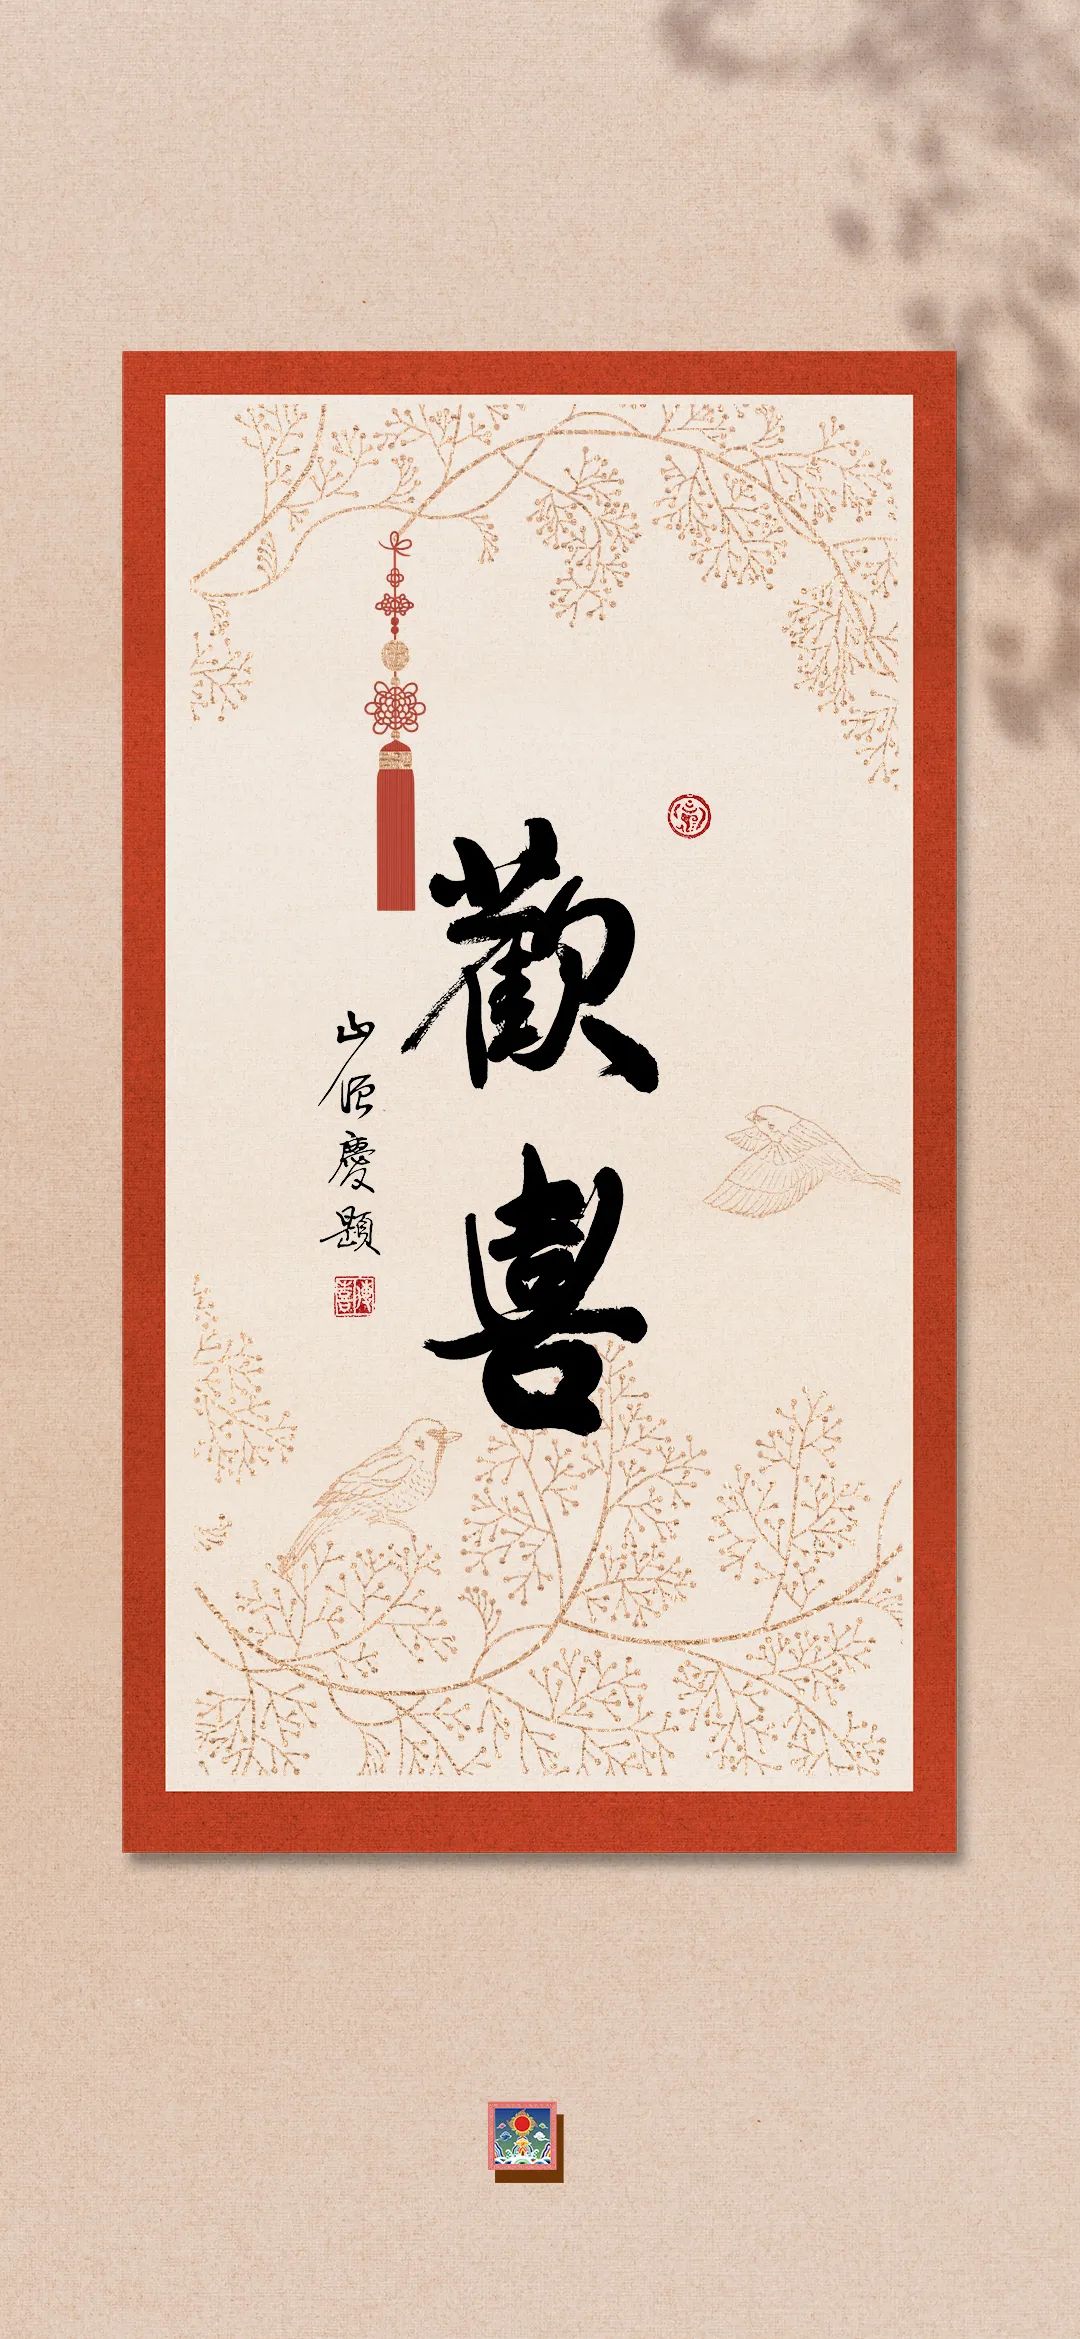 歡喜
山慶題